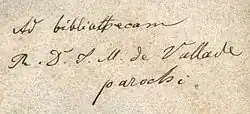 Ad bibliothecam
R. D. J. M. de Vallade
parochi.